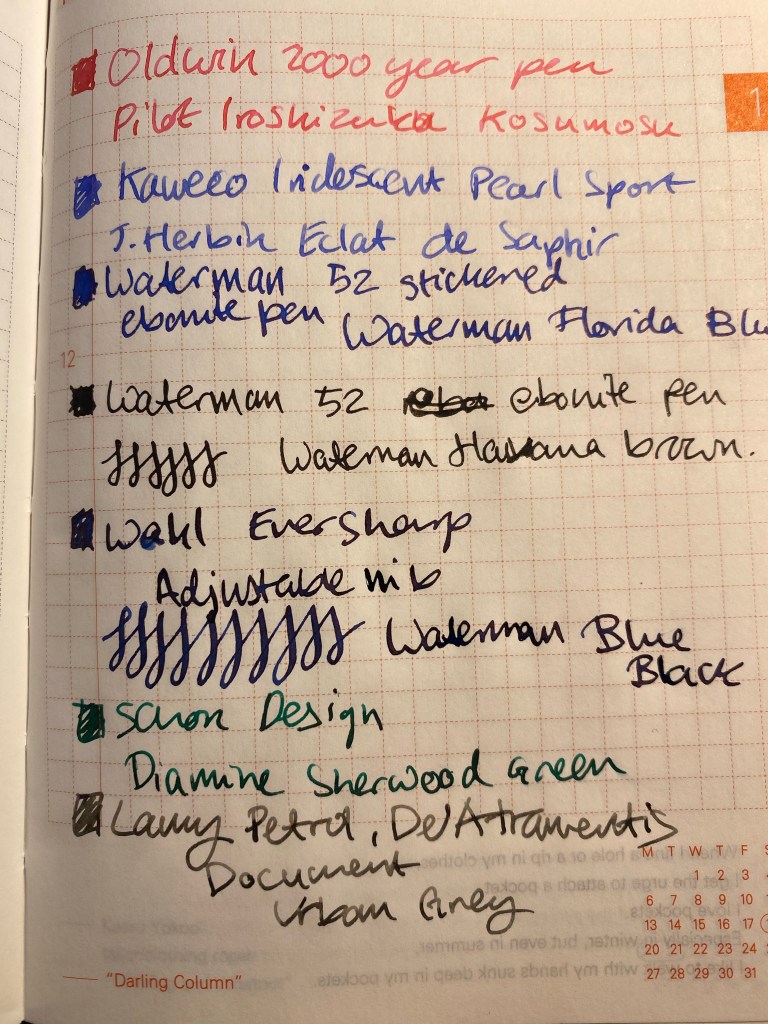 1
Oldwin 2000 year pen
Pilot Iroshizuku Kosumosu
Kaweco Iridescent Pearl Sport
J. Herbin Eclat de Saphir
Waterman 52 stickered
ebonite pen Waterman Florida Blu
12
Waterman 52 ebonite pen
Waterman Havana brown.
Wahl Eversharp
Adjustable nib
Waterman Blue
Black
Schon Design
Diamine Sherwood Green
Lamy Petrol, De'Atramentis
Document
Urban Grey
M T W T F S
1 2 3
6 7 8 9 10
13 14 15 16 17
20 21 22 23 24
27 28 29 30 31
"Darling Column"